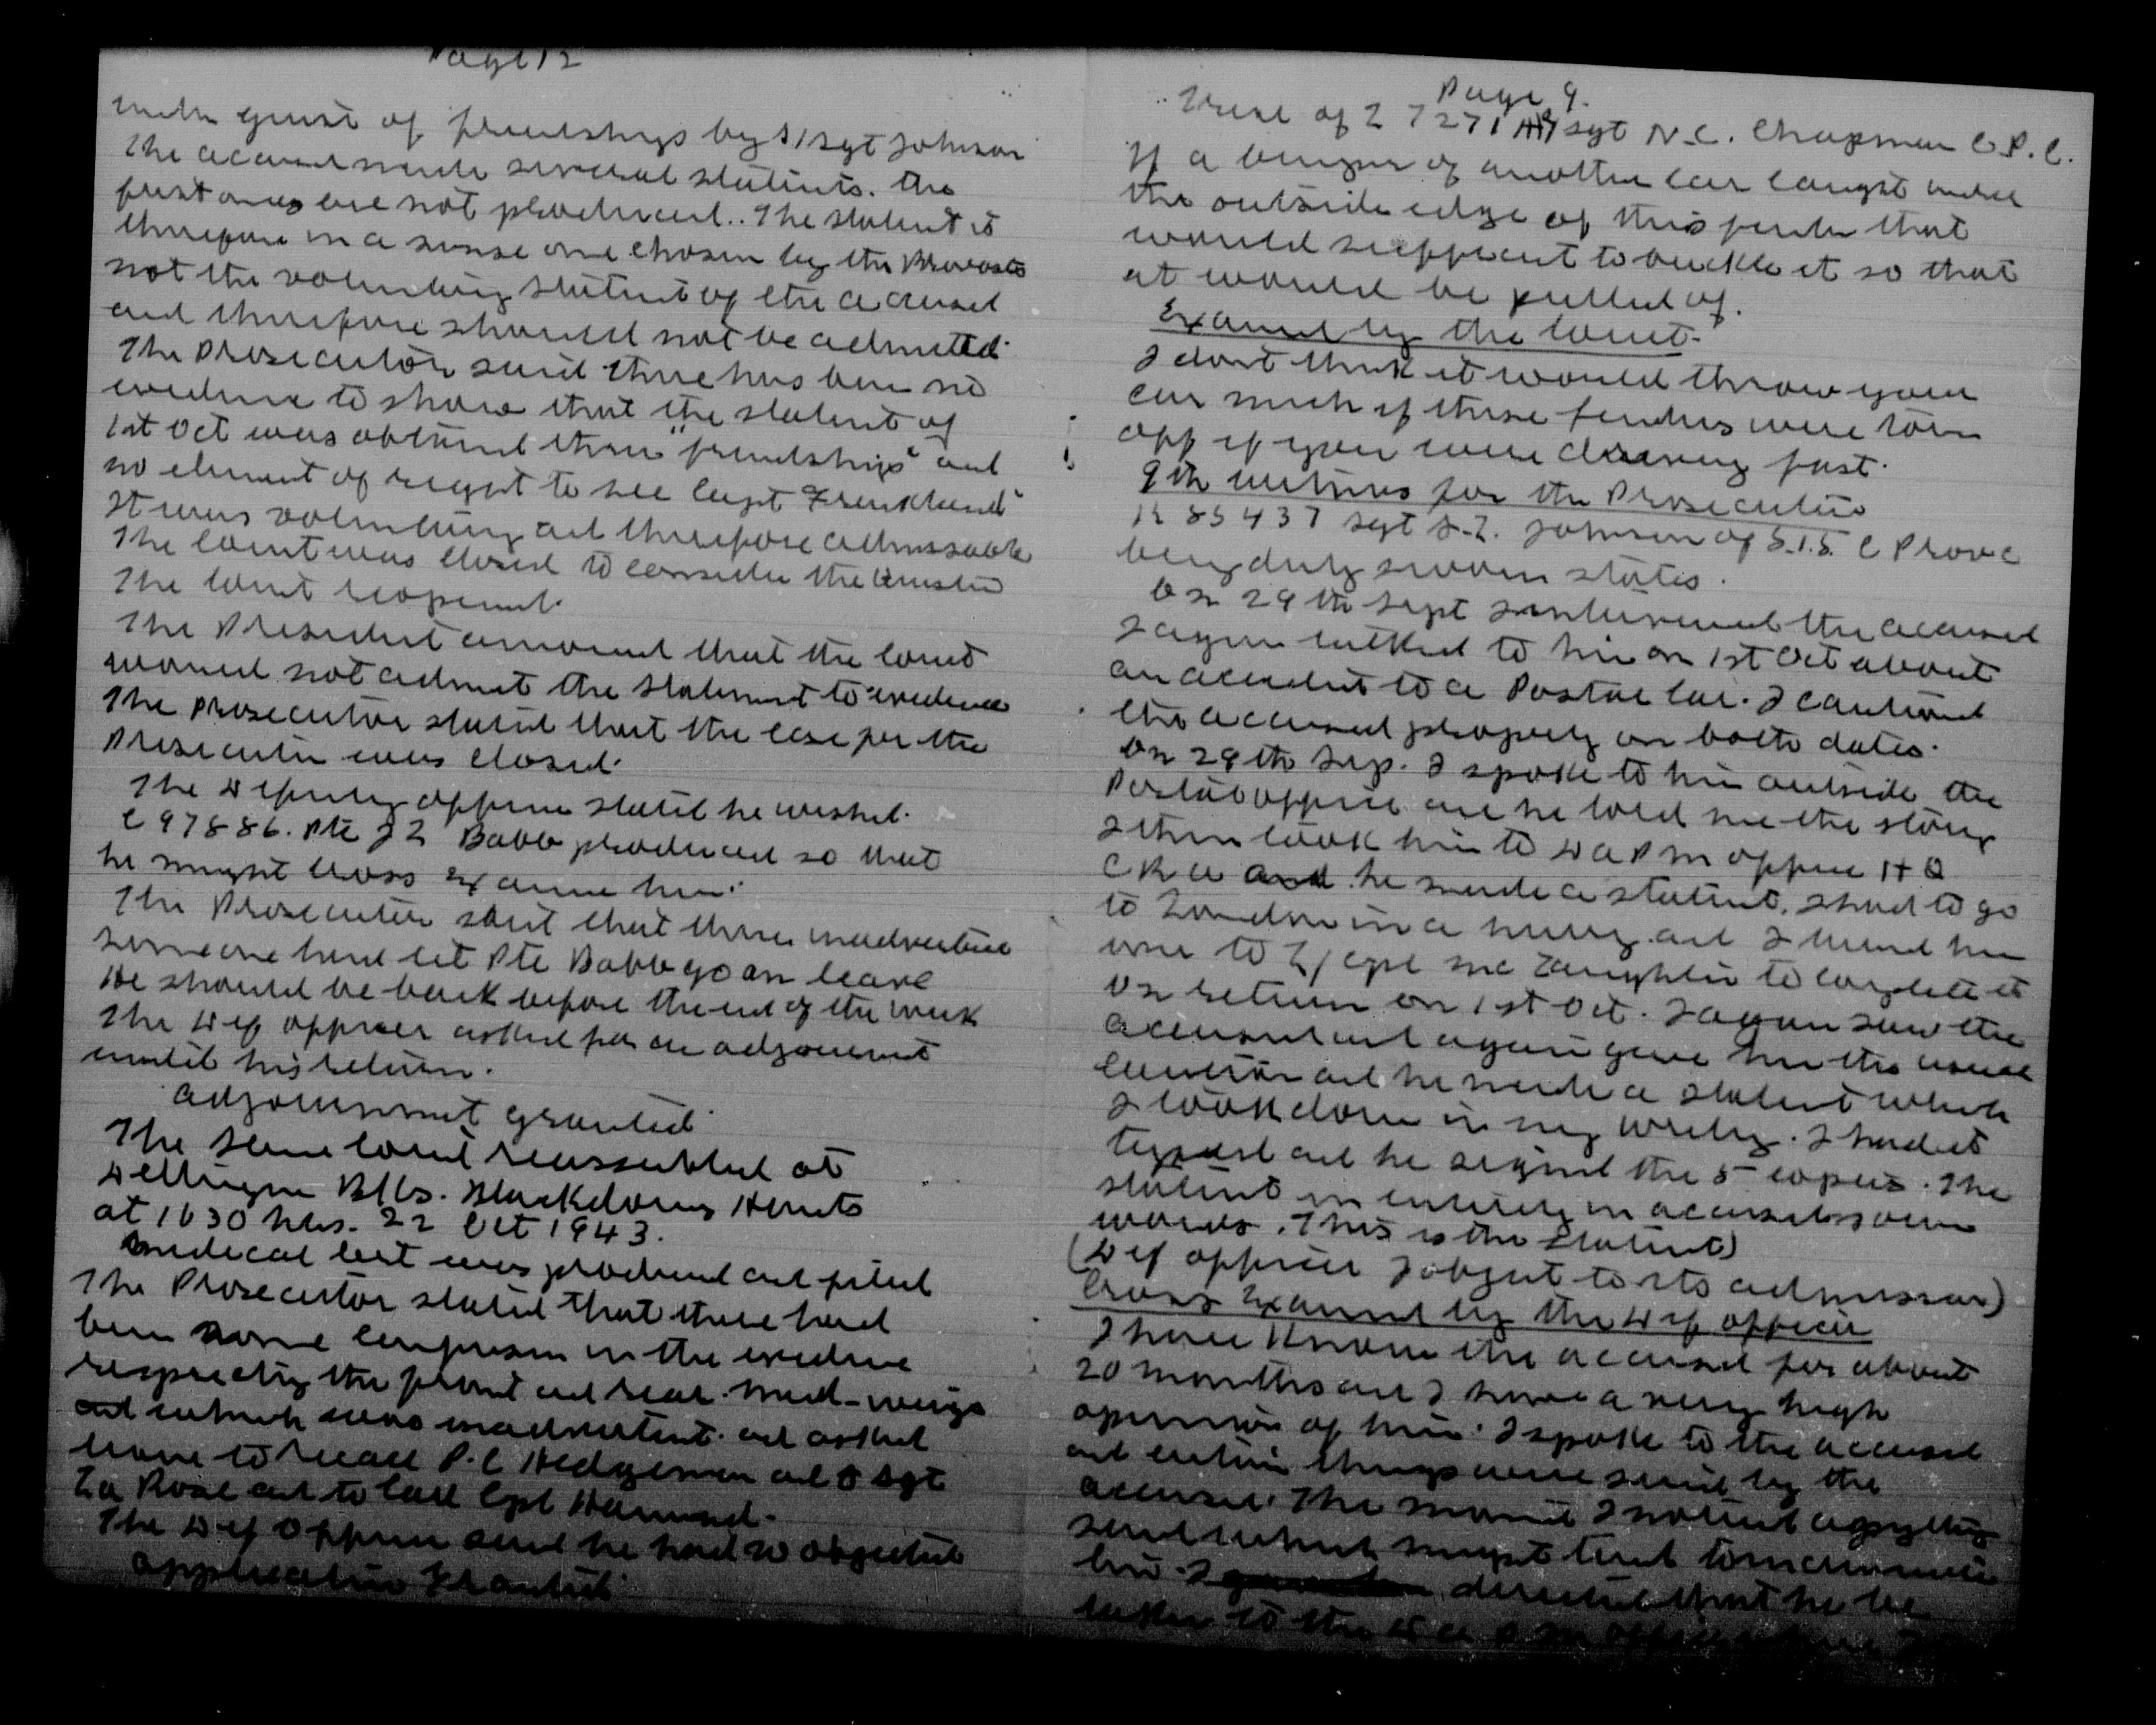 Page 12
under guise of friendships by S/Sgt Johnson
The accused made several statints. The
first ones are not produced.. The statent is
therefore in a sense one chosen by the Provosts
not the voluntary statent of the accused
and therefore should not be admitted.
The Prosecutor said there has been no
evidence to show that the statent of
1st Oct was obtained thru "friendships" and
no element of request to see Capt Frankland
It was voluntary and therefore admissable
The Court was closed to consider the question
The Court reopened.
The President announced that the Court
would not admit the statement to evidence
The Prosecutor stated that the case for the
Prosecution was closed.
The Defending officer stated he wished.
C 97886. Pte J L Babb produced so that
he might cross examine him.
The Prosecutor said that thru inadvertence
someone had let Pte Babb go on leave
He should be back before the end of the week
The Def officer asked for an adjournment
until his return.
adjournment granted.
The same Court reassembled at
Dettingen Blks. Blackdown Hants
at 1630 hrs. 22 Oct 1943.
Medical cert was produced and filed
The Prosecutor stated that there had
been some confusion in the evidence
respecting the front and rear mud-wings
and which was inadvertent. and asked
leave to recall P.C Hedgeman and S Sgt
La Rose and to call Cpl Hammond.
The Def Officer said he had no objection
application granted.
Page 9.
Trial of L 27271 Sgt N.C. Chapman C.P.C.
If a bumper of another car caught under
the outside edge of this fender that
would sufficient to buckle it so that
it would be pulled of.
Examined by the Court.
I dont think it would throw your
car much if these fenders were torn
off if you were driving fast.
9th witness for the Prosecution
K 85437 Sgt J.L. Johnson of S.I.S. C Prov C
being duly sworn states.
On 29th Sept I interviewed the accused
I again talked to him on 1st Oct about
an accident to a Postal Car. I cautioned
the accused properly on both dates.
On 29th Sep. I spoke to him outside the
Postal office and he told me the story
I then took him to D A P M office H Q
C R U and he made a statent. I had to go
to London in a hurry and I turned him
over to L/Cpl McLaughlin to complete it
On return on 1st Oct. I again saw the
accused and again gave him the usual
caution and he made a statent which
I took down in my writing. I had it
typed and he signed the 5 copies. The
statent in entirety in accuseds own
words. This is the Statent)
(Def officer I object to its admission)
Cross Examined by the Def officer
I have known the accused for about
20 months and I have a very high
opinion of him. I spoke to the accused
and certain things were said by the
accused. The moment I noticed anything
said which might tend to incriminate
him I directed that he be
taken to the D A P M office